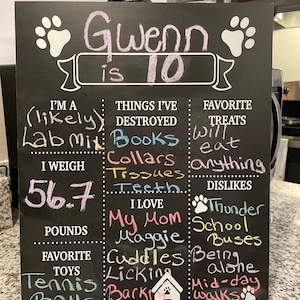 Gwenn
is 10
I'M A
(likely)
Lab mix
I WEIGH
56.7
POUNDS
FAVORITE
TOYS
Tennis
Balls
THINGS I'VE
DESTROYED
Books
Collars
Tissues
Teeth
I LOVE
My Mom
Maggie
Cuddles
Licking
Barking
FAVORITE
TREATS
Will
eat
anything
DISLIKES
Thunder
School
Buses
Being
alone
Mid-day
walks